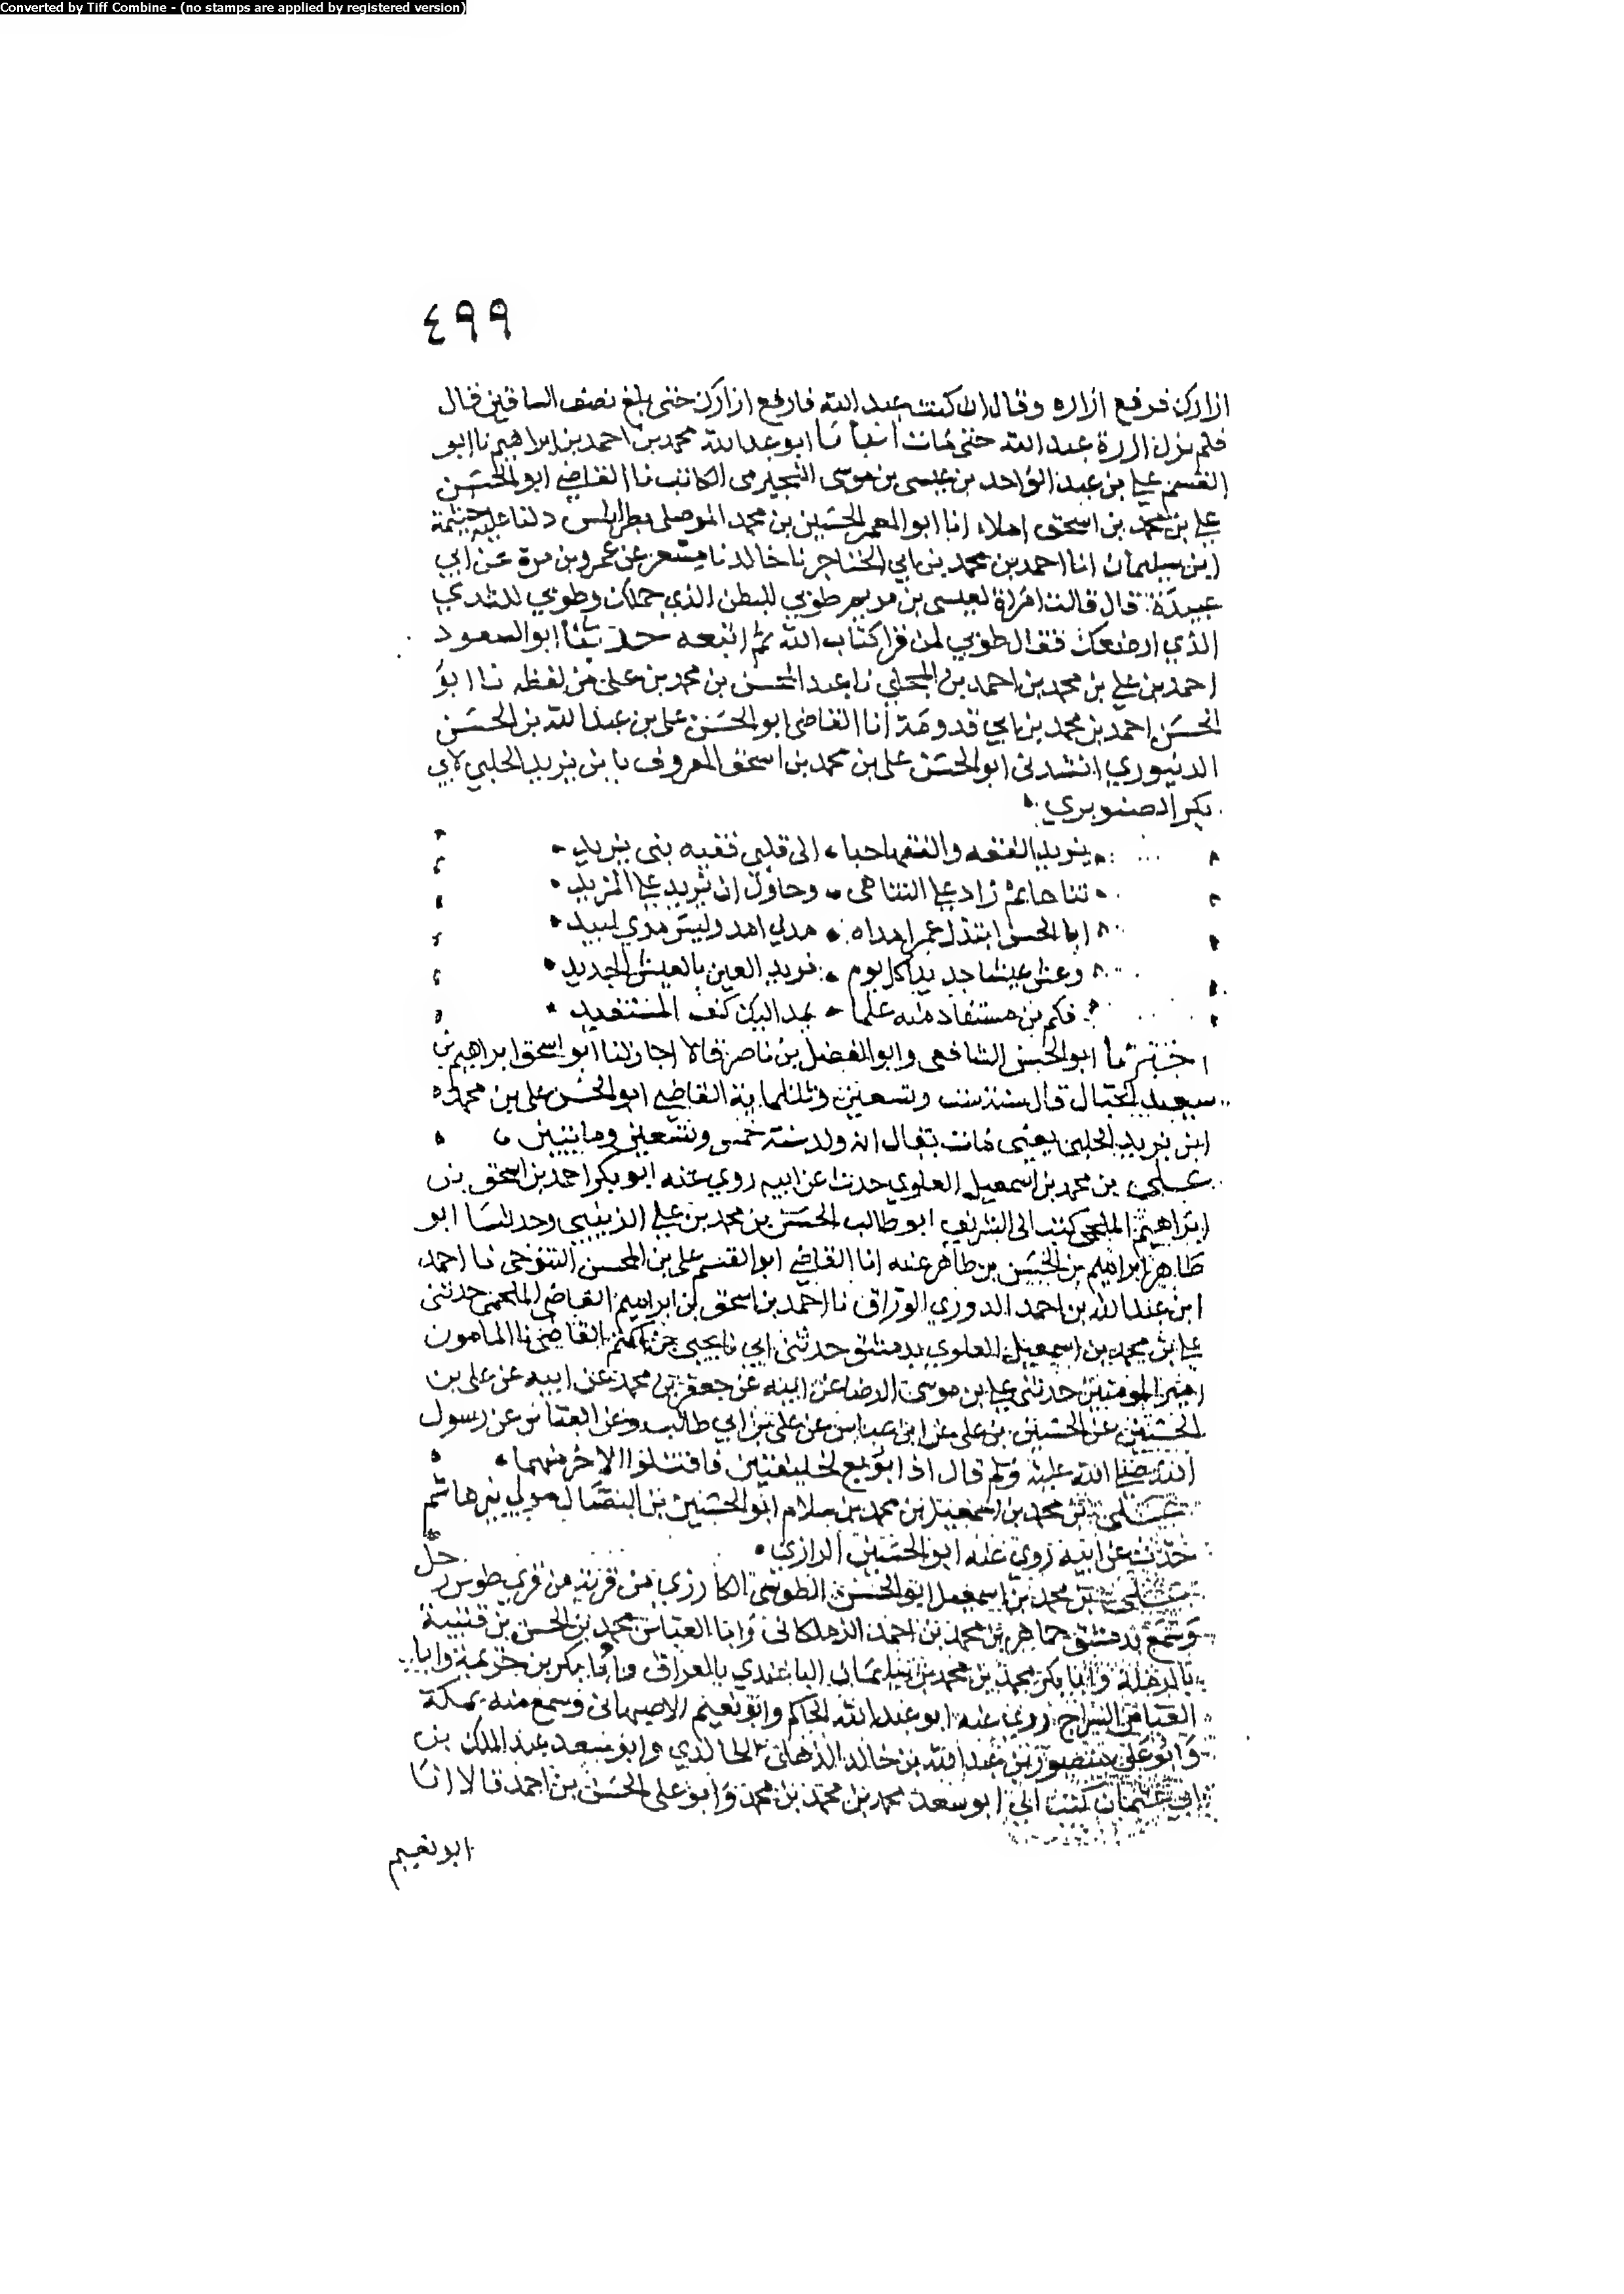 Converted by Tiff Combine - (no stamps are applied by registered version)
٤٩٩
ازارك فرفع ازاره وقال ان كنت عبد الله فارفع ازارك حتى بلغ نصف الساقين قال
فلم تزل ازرة عبد الله حتى مات انبانا ابو عبد الله محمد بن احمد بن ابراهيم نا ابو
القسم علي بن عبد الواحد بن عيسى بن موسى النجيرمي الكاتب نا القاضي ابو الحسن
علي بن محمد بن اسحق املاء انا ابو المعمر الحسين بن محمد الموصلي بطرابلس دلنا عليه خيثمة
ابن سليمان انا احمد بن محمد بن ابي الخناجر نا خالد نا مسعر عن عمرو بن مرة عن ابي
عبيدة قال قالت امراة لعيسى بن مريم طوبي للبطن الذي حملك وطوبي للثدي
الذي ارضعك فقال طوبي لمن قرا كتاب الله ثم اتبعه حدثنا ابو السعود
احمد بن علي بن محمد بن احمد بن المجلي نا عبد المحسن بن محمد بن علي من لفظه نا ابو
الحسن احمد بن محمد بن ابي قدومة انا القاضي ابو الحسن علي بن عبد الله بن الحسن
الدينوري انشدني ابو الحسن علي بن محمد بن اسحق المعروف بابن يزيد الحلبي لابي
بكر الصنوبري
يزيد الفقه والفقها حبا الى قلبي فقيه بني يزيد
تناها ثم زاد علي التناهي وحاول ان يزيد علي المزيد
ابا الحسن ابتذل عمر امداه مدي امد وليس مدي لبيد
وعش عيشا جديدا كل يوم قرير العين بالعيش الجديد
فكم من مستفاد منه علما يمد اليك كف المستفيد
اخبرنا ابو الحسن الشافعي وابو الفضل بن ناصر قالا اجاز لنا ابو اسحق ابراهيم بن
سعيد الحبال قال سنة ست وتسعين وثلثمائة القاضي ابو الحسن علي بن محمد
ابن يزيد الحلبي يعني مات يقال انه ولد سنة خمس وتسعين ومايتين
علي بن محمد بن اسمعيل العلوي حدث عن ابيه روي عنه ابو بكر احمد بن اسحق بن
ابراهيم الملحمي كتب الى الشريف ابو طالب الحسن بن محمد بن علي الزينبي وحدثنا ابو
طاهر ابراهيم بن الحسن بن طاهر عنه انا القاضي ابو القسم علي بن المحسن التنوخي نا احمد
ابن عبد الله بن احمد الدوري الوراق نا احمد بن اسحق بن ابراهيم القاضي الملحمي حدثني
علي بن محمد بن اسمعيل العلوي بدمشق حدثني ابي نا يحيى بن اكثم القاضي نا المامون
امير المومنين حدثني علي بن موسى الرضا عن ابيه عن جعفر بن محمد عن ابيه عن علي بن
الحسين عن الحسين بن علي عن ابن عباس عن علي بن ابي طالب وعن العباس عن رسول
الله صلى الله عليه وسلم قال اذا بويع لخليفتين فاقتلوا الاخر منهما
علي بن محمد بن اسمعيل بن محمد بن سلام ابو الحسين بن البقال مولي بني هاشم
حدث عن ابيه روي عنه ابو الحسين الرازي
علي بن محمد بن اسمعيل ابو الحسن الطوسي الكارزي من قرية من قري طوس رحل
وسمع بدمشق جماهر بن محمد بن احمد الزملكاني وابا العباس محمد بن الحسن بن قتيبة
بالرملة وابا بكر محمد بن محمد بن سليمان الباغندي بالعراق وابا بكر بن خزيمة وابا
العباس السراج روي عنه ابو عبد الله الحاكم وابو نعيم الاصبهاني وسمع منه بمكة
وابو علي منصور بن عبد الله بن خالد الذهلي الخالدي وابو سعد عبد الملك بن
ابي عثمان كتب الي ابو سعد محمد بن محمد بن محمد وابو علي الحسن بن احمد قالا انا
ابو نعيم